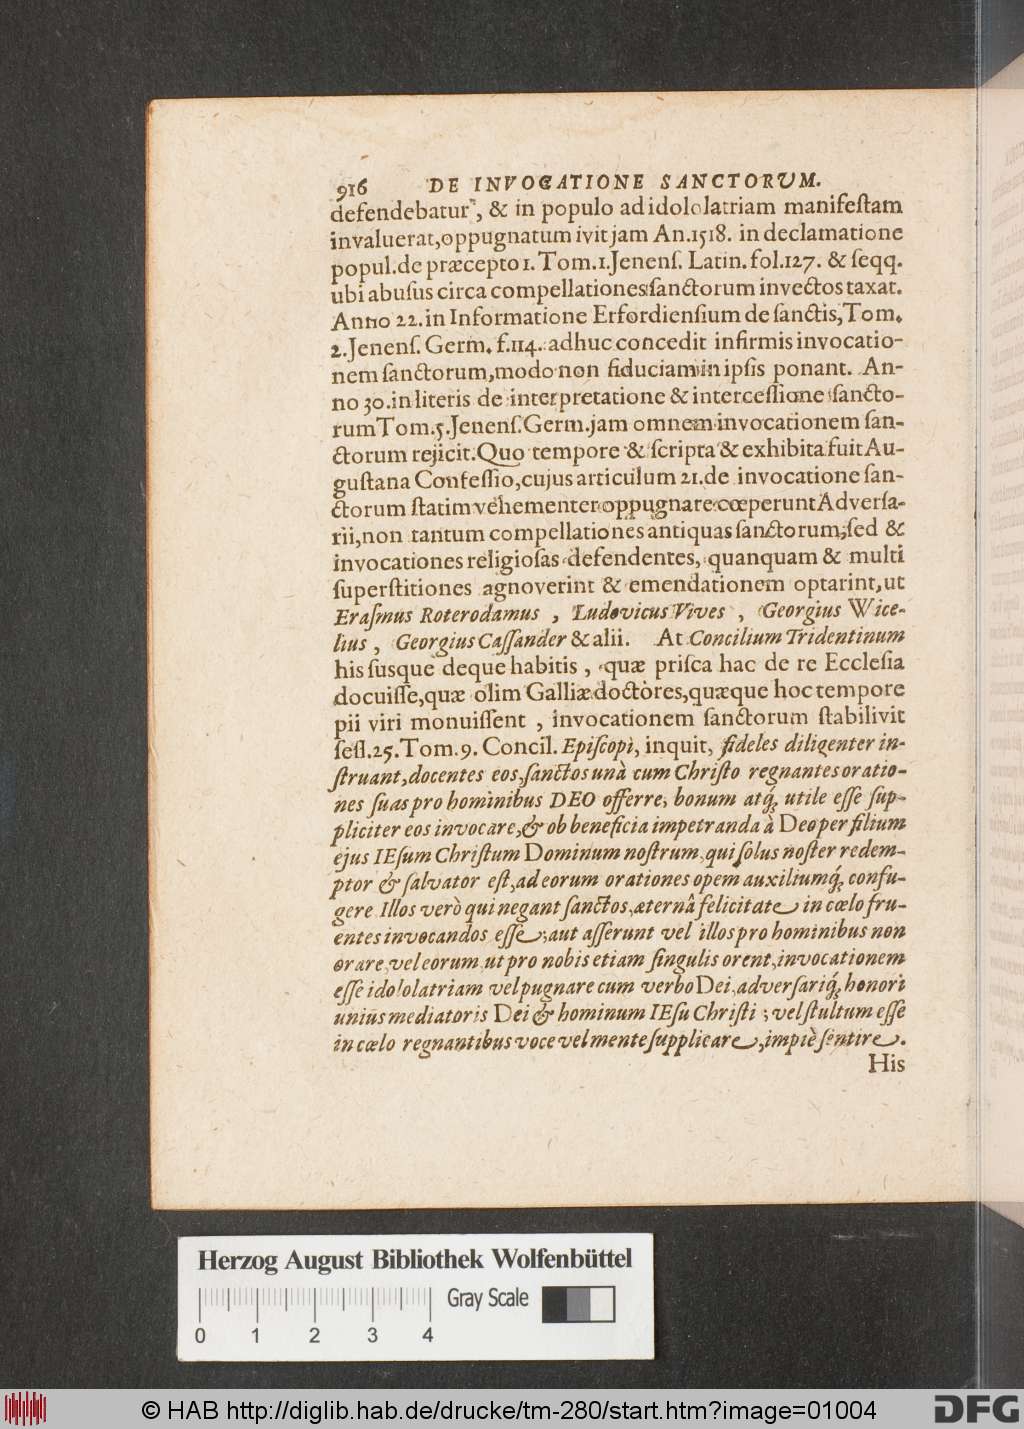 916 DE INVOCATIONE SANCTORUM.
defendebatur, & in populo ad idololatriam manifeſtam
invaluerat, oppugnatum ivit jam An. 1518. in declamatione
popul. de præcepto 1. Tom. 1. Jenenſ. Latin. fol. 127. & ſeqq.
ubi abuſus circa compellationes ſanctorum invectos taxat.
Anno 22. in Informatione Erfordienſium de ſanctis, Tom.
2. Jenenſ. Germ. f. 114. adhuc concedit infirmis invocatio-
nem ſanctorum, modo non fiduciam in ipſis ponant. An-
no 30. in literis de interpretatione & interceſſione ſancto-
rum Tom. 5. Jenenſ. Germ. jam omnem invocationem ſan-
ctorum rejicit. Quo tempore & ſcripta & exhibita fuit Au-
guſtana Confeſſio, cujus articulum 21. de invocatione ſan-
ctorum ſtatim vehementer oppugnare cœperunt Adverſa-
rii, non tantum compellationes antiquas ſanctorum, ſed &
invocationes religioſas defendentes, quanquam & multi
ſuperſtitiones agnoverint & emendationem optarint, ut
Eraſmus Roterodamus, Ludovicus Vives, Georgius Wice-
lius, Georgius Caſſander & alii. At Concilium Tridentinum
his ſusque deque habitis, quæ priſca hac de re Eccleſia
docuiſſe, quæ olim Galliæ doctores, quæque hoc tempore
pii viri monuiſſent, invocationem ſanctorum ſtabilivit
ſeſſ. 25. Tom. 9. Concil. Epiſcopi, inquit, fideles diligenter in-
ſtruant, docentes eos, ſanctos unà cum Chriſto regnantes oratio-
nes ſuas pro hominibus DEO offerre, bonum atq́; utile eſſe ſup-
pliciter eos invocare, & ob beneficia impetranda à Deo per filium
ejus IEſum Chriſtum Dominum noſtrum, qui ſolus noſter redem-
ptor & ſalvator eſt, ad eorum orationes opem auxiliumq́; confu-
gere Illos verò qui negant ſanctos, æternâ felicitate in cœlo fru-
entes invocandos eſſe; aut aſſerunt vel illos pro hominibus non
orare, vel eorum, ut pro nobis etiam ſingulis orent, invocationem
eſſe idololatriam vel pugnare cum verbo Dei, adverſariq́; honori
unius mediatoris Dei & hominum IEſu Chriſti; vel ſtultum eſſe
in cœlo regnantibus voce vel mente ſupplicare, impiè ſentire.
His
Herzog August Bibliothek Wolfenbüttel
Gray Scale
0 1 2 3 4
© HAB http://diglib.hab.de/drucke/tm-280/start.htm?image=01004
DFG